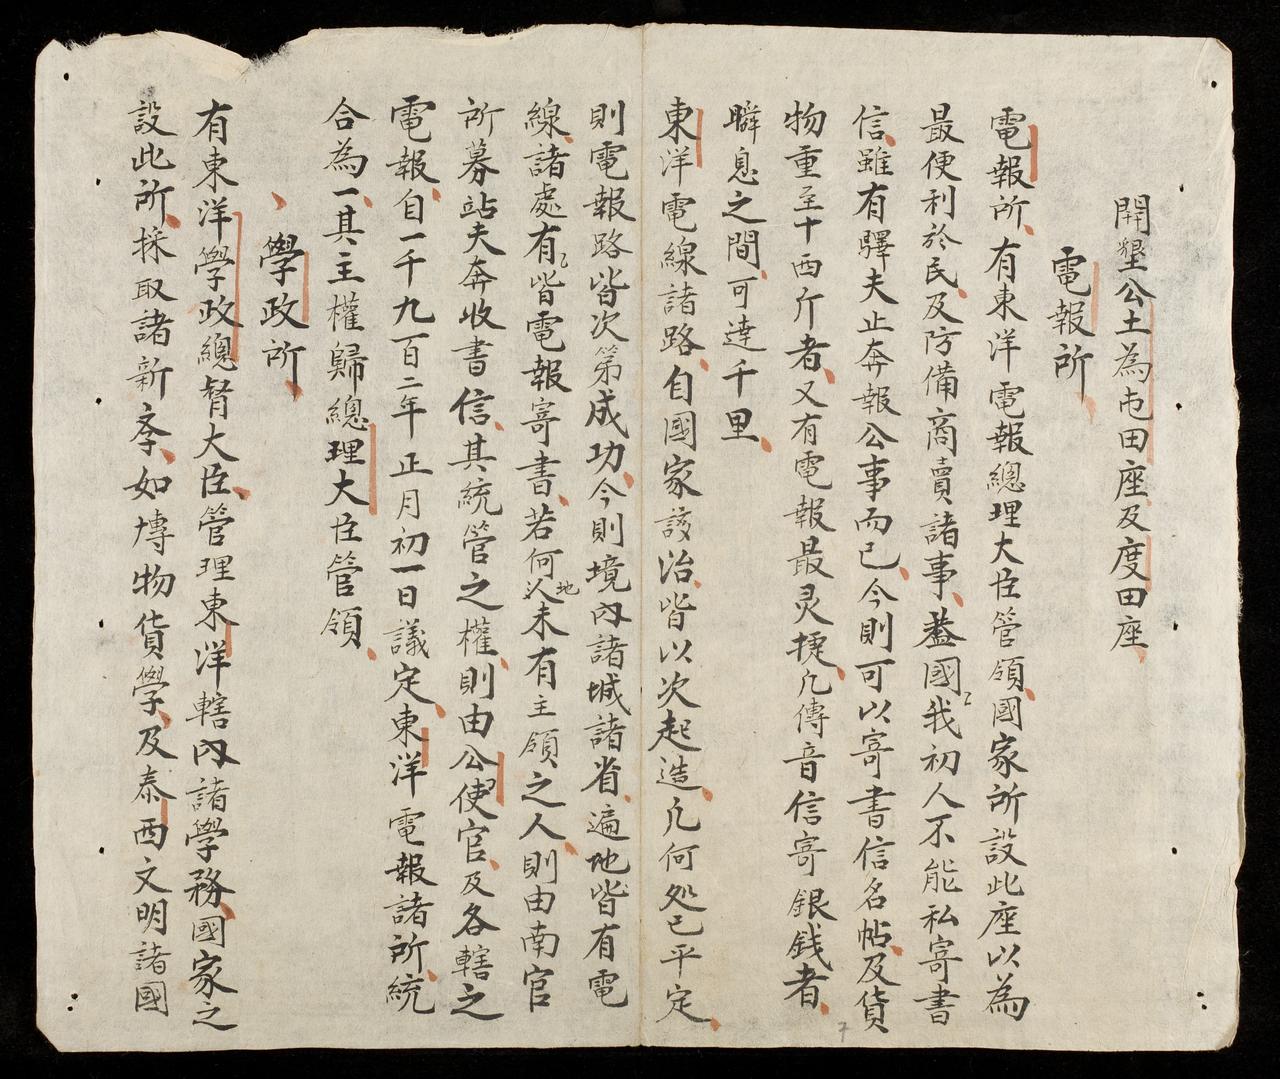 開墾公土為屯田座及度田座
電報所
電報所有東洋電報總理大臣管領國家所設此座以為
最便利於民及防備商賣諸事蓋國我初人不能私寄書
信雖有驛夫止奔報公事而已今則可以寄書信名帖及貨
物重至十西斤者又有電報最灵捷凢傳音信寄銀銭者
瞬息之間可達千里
東洋電線諸路自國家該治皆以次起造凢何処已平定
則電報路皆次第成功今則境内諸城諸省遍地皆有電
線諸處有皆電報寄書若何地未有主領之人則由南官
所募站夫奔收書信其統管之權則由公使官及各轄之
電報自一千九百二年正月初一日議定東洋電報諸所統
合為一其主權歸總理大臣管領
學政所
有東洋學政總督大臣管理東洋轄内諸學務國家之
設此所採取諸新孝如博物貨學及泰西文明諸國
7